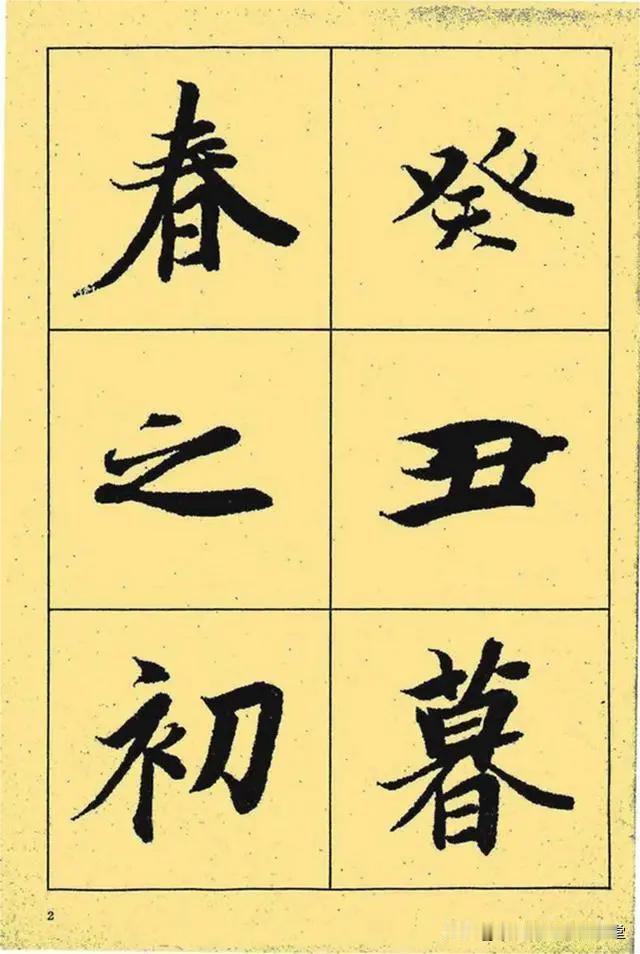 癸丑暮
春之初
2